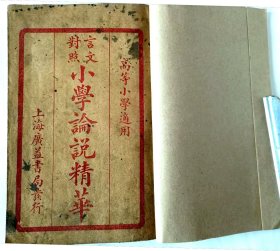 高等小學適用
言文
對照
小學論說精華
上海廣益書局發行